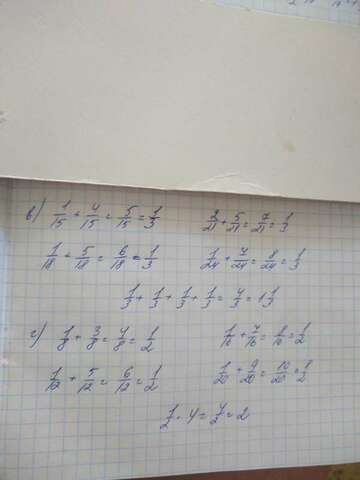 в) 1/15 + 4/15 = 5/15 = 1/3 2/21 + 5/21 = 7/21 = 1/3
1/18 + 5/18 = 6/18 = 1/3 1/24 + 7/24 = 8/24 = 1/3
1/3 + 1/3 + 1/3 + 1/3 = 4/3 = 1 1/3
г) 1/8 + 3/8 = 4/8 = 1/2 1/16 + 7/16 = 8/16 = 1/2
1/12 + 5/12 = 6/12 = 1/2 1/20 + 9/20 = 10/20 = 1/2
1/2 · 4 = 4/2 = 2